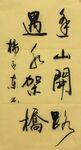 逢山開路
遇水架橋